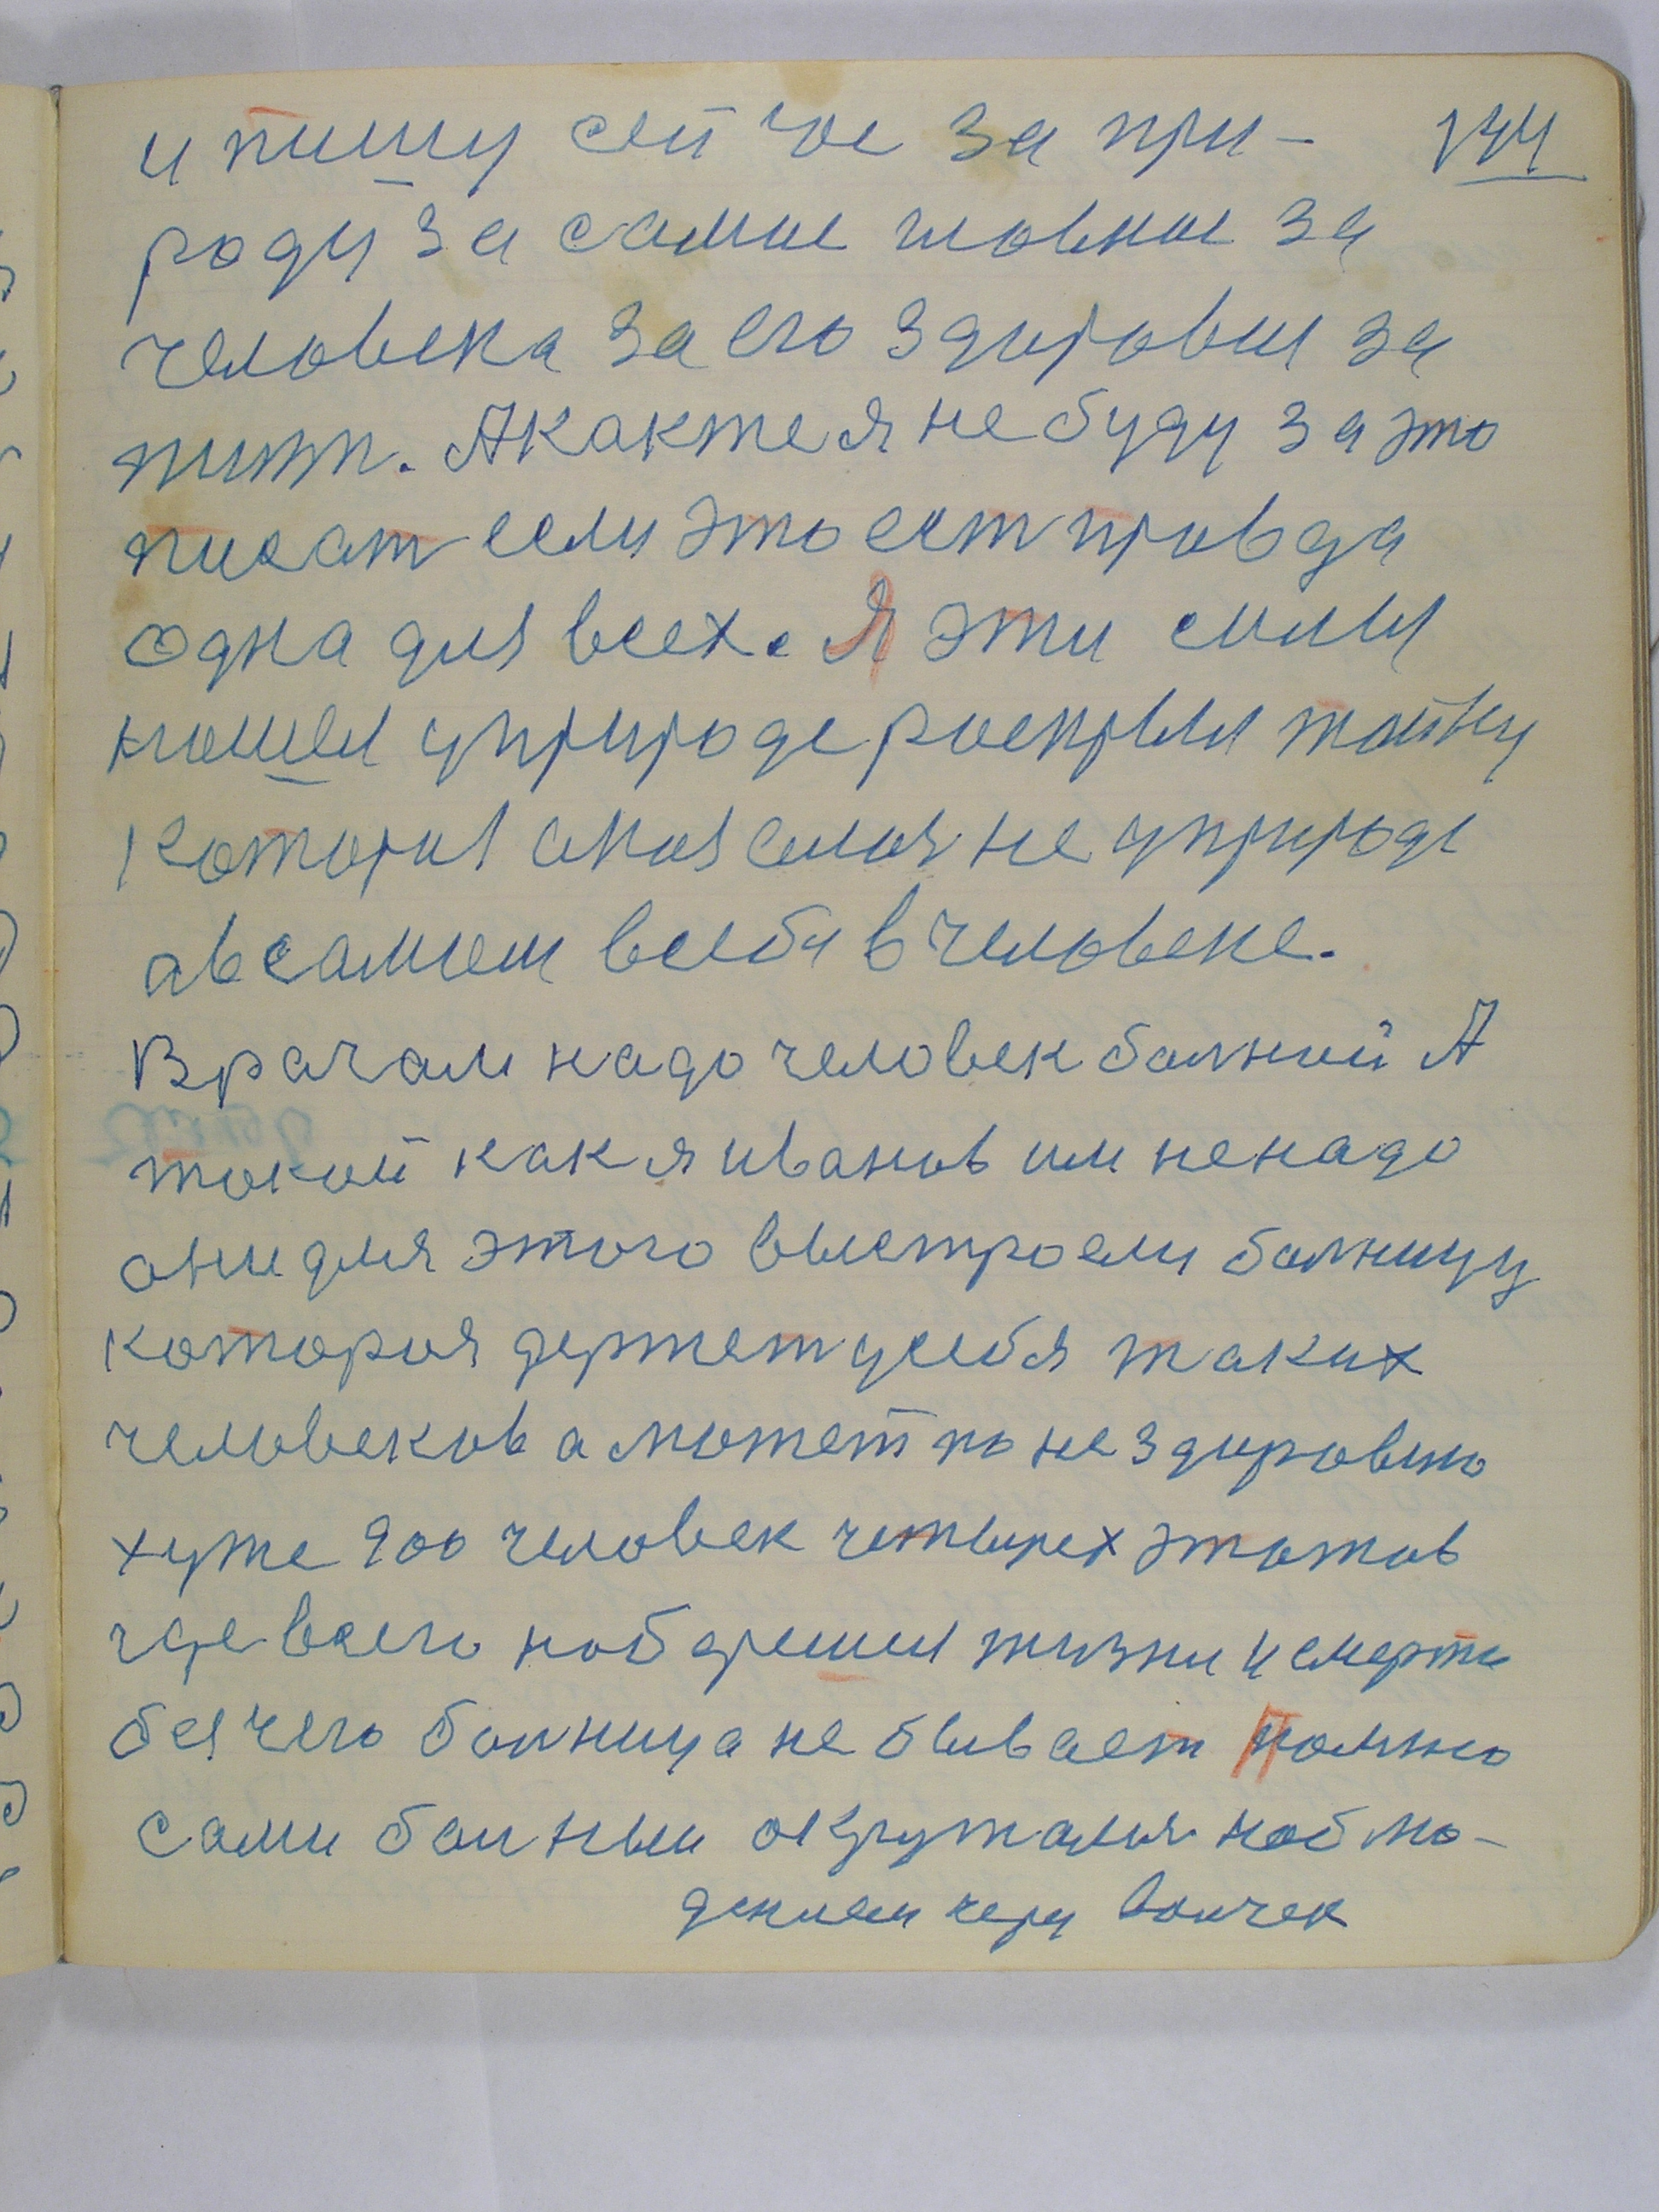 и пишу сейчас за при- 144
роду за самое главное за
человека за его здоровие за
жизн. А как же я не буду за это
писат если это ест правда
одна для всех. Я эти силы
нашел у природе раскрыл тайну
которая стоя не у природе
а в самом в себе в человеке.
Врачам надо человек болной А
такой как я иванов им не надо
они для этого выстроели болницу
которая держет у себя таких
человеков а может по нездоровию
хуже 900 человек четырех этажов
где всего набереш жизни и смерти
без чего болница не бывает Полно
сами болные окружался наблю-
дением через волчек